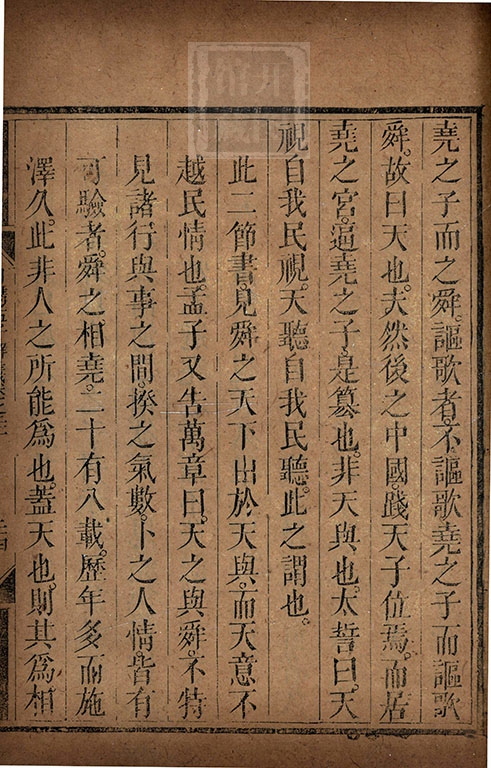 堯之子而之舜。謳歌者。不謳歌堯之子而謳歌
舜。故曰天也。夫然後之中國。踐天子位焉。而居
堯之宮。逼堯之子。是篡也。非天與也。太誓曰。天
視自我民視。天聽自我民聽。此之謂也。
此二節書。見舜之天下出於天與。而天意不
越民情也。孟子又告萬章曰。天之與舜。不特
見諸行與事之間。揆之氣數。卜之人情。皆有
可驗者。舜之相堯。二十有八載。歷年多而施
澤久。此非人之所能為也。蓋天也。則其為相